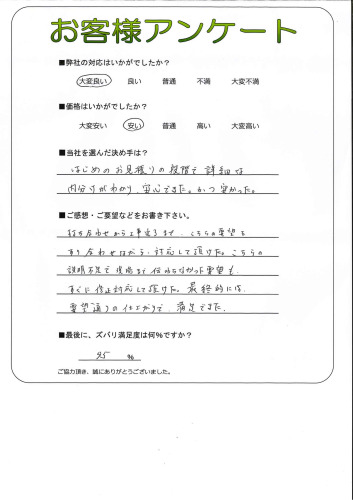 お客様アンケート
■弊社の対応はいかがでしたか？
大変良い 良い 普通 不満 大変不満
■価格はいかがでしたか？
大変安い 安い 普通 高い 大変高い
■当社を選んだ決め手は？
はじめのお見積りの段階で詳細な
内分けがわかり、安心できた。かつ安かった。
■ご感想・ご要望などをお書き下さい。
打ち合わせから工事完了まで、こちらの要望を
すり合わせながら対応して頂けた。こちらの
説明不足で現場まで伝わらなかった要望も、
すぐに修正対応して頂けた。最終的には、
要望通りの仕上がりで、満足できた。
■最後に、ズバリ満足度は何％ですか？
95 %
ご協力頂き、誠にありがとうございました。